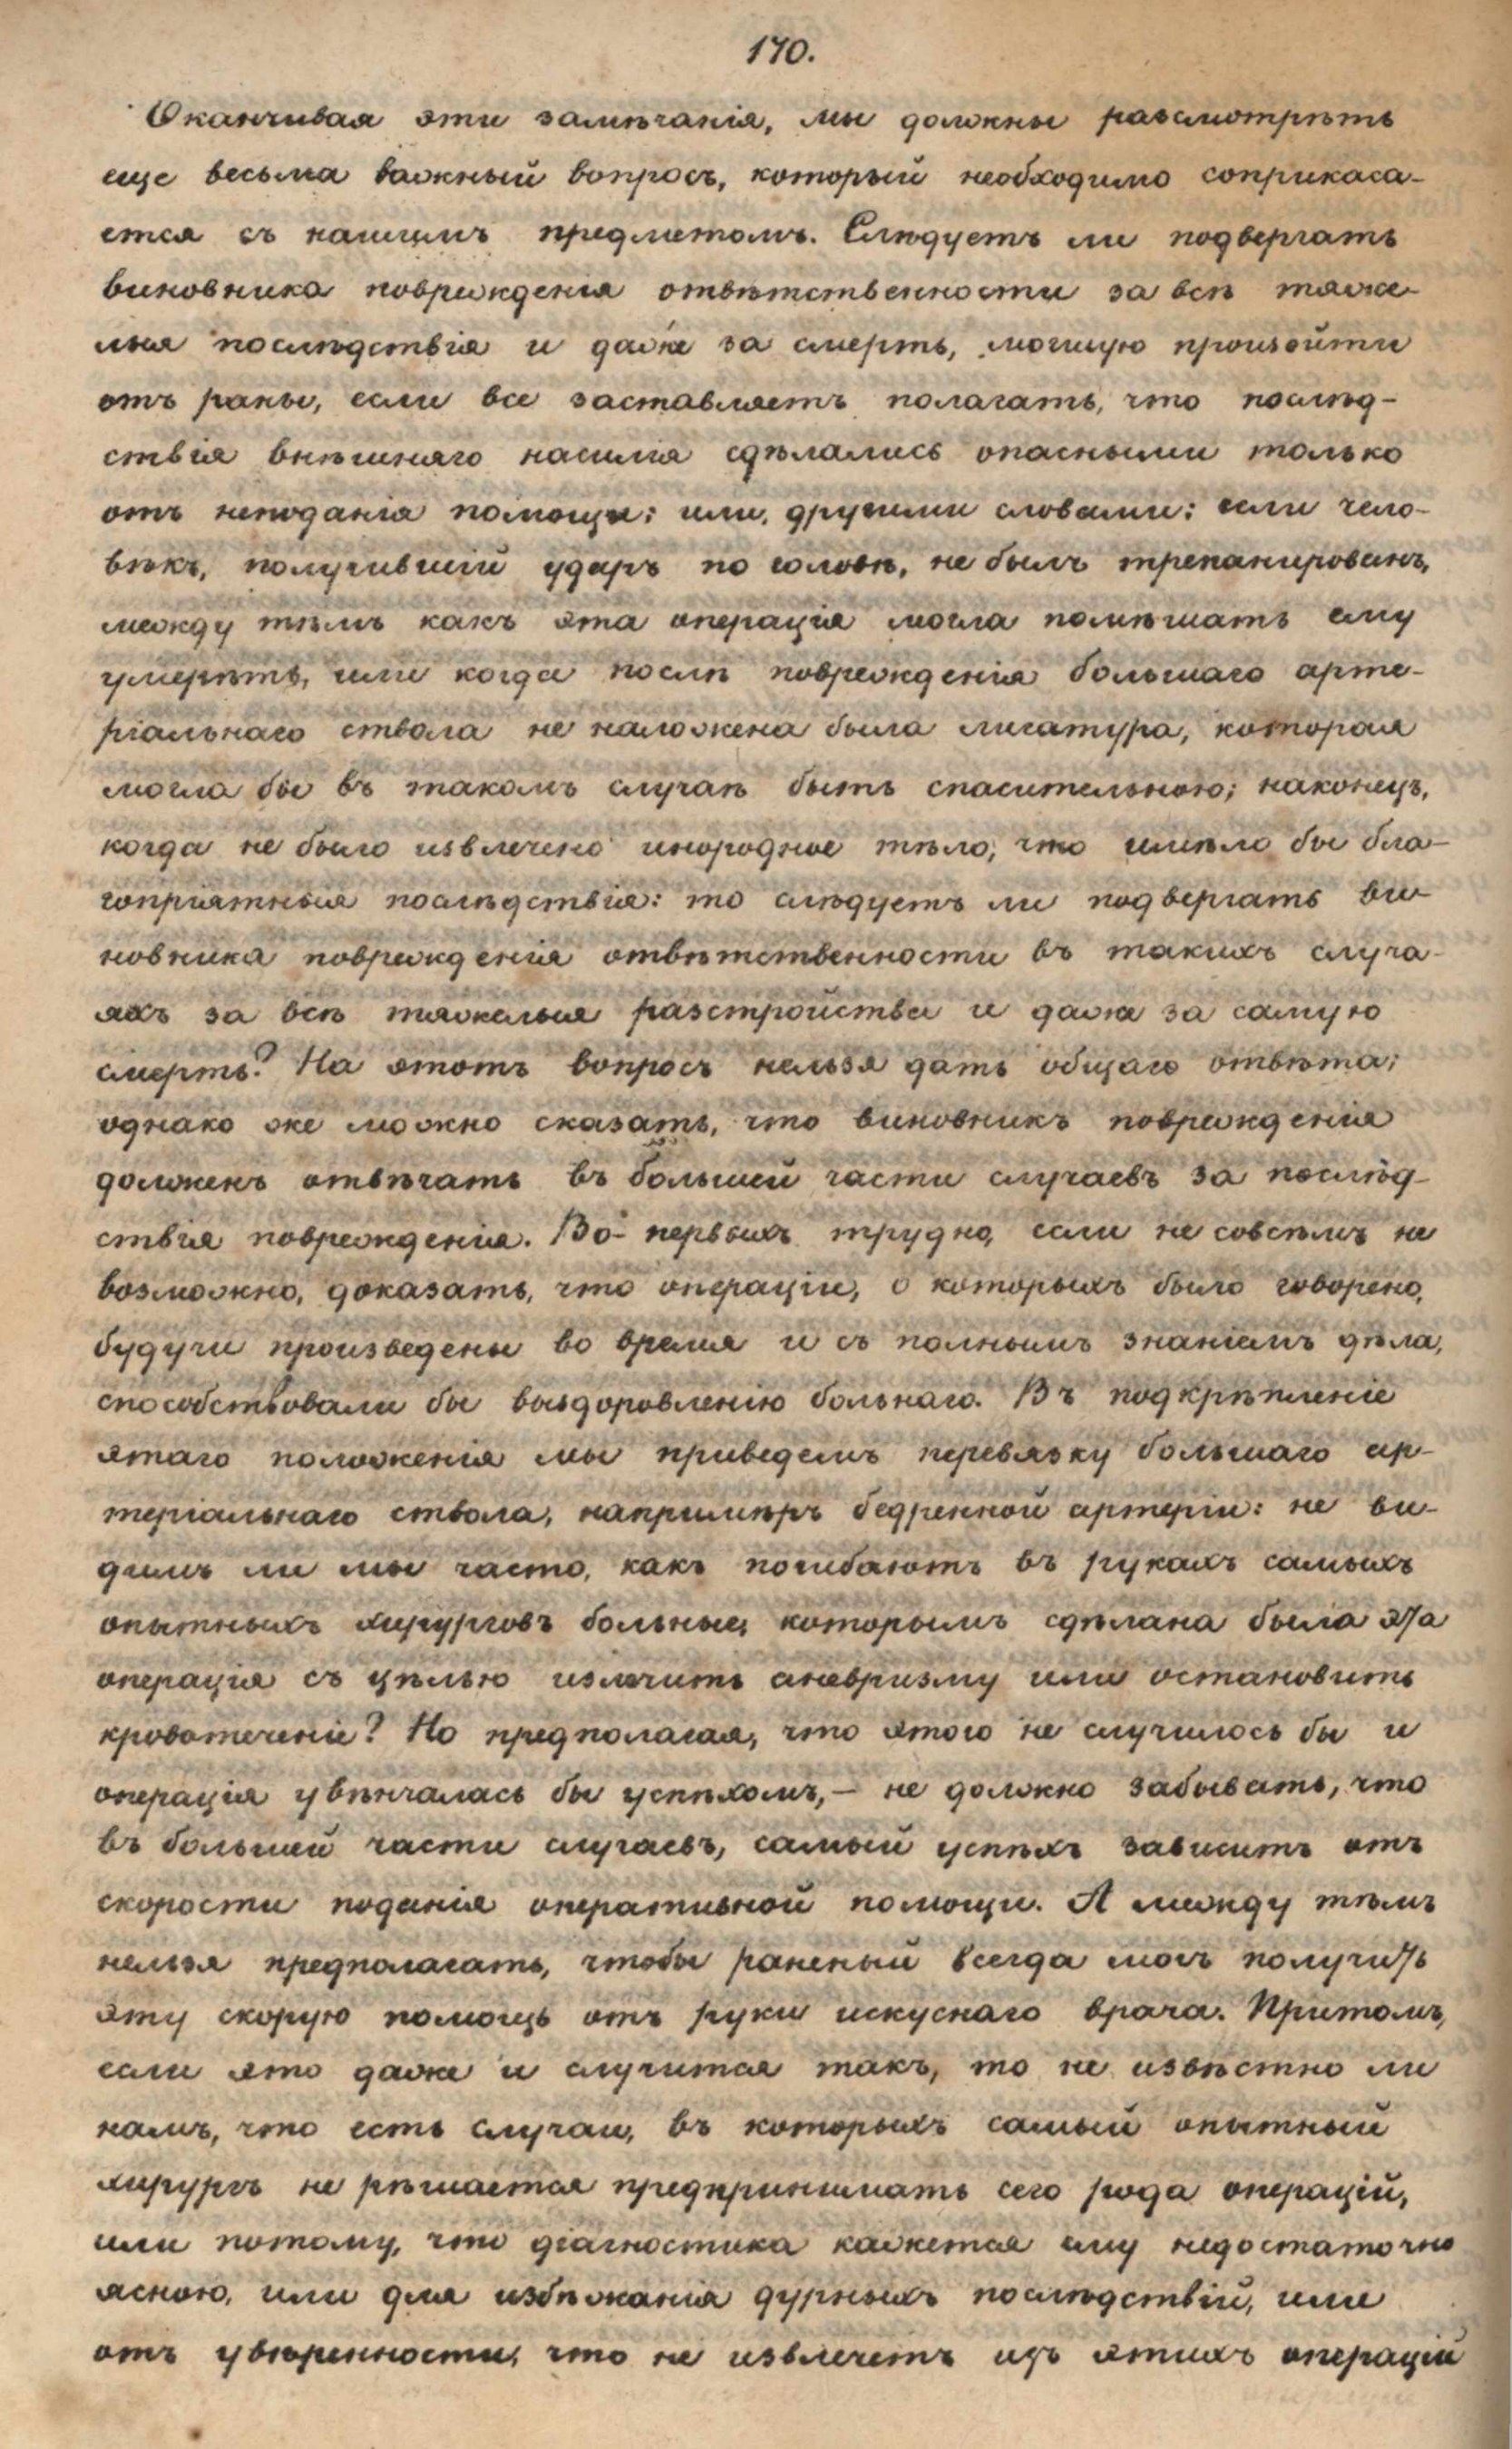 170.
Оканчивая эти замѣчанія, мы должны разсмотрѣть
еще весьма важный вопросъ, который необходимо соприкаса-
ется съ нашимъ предметомъ. Слѣдуетъ ли подвергать
виновника поврежденія отвѣтственности за всѣ тяже-
лыя послѣдствія и даже за смерть, могшую произойти
отъ раны, если все заставляетъ полагать, что послѣд-
ствія внѣшняго насилія сдѣлались опасными только
отъ неподанія помощи: или, другими словами: если чело-
вѣкъ, получившій ударъ по головѣ, не былъ трепанированъ,
между тѣмъ какъ эта операція могла помѣшать ему
умереть, или когда послѣ поврежденія большаго арте-
ріальнаго ствола не наложена была лигатура, которая
могла бы въ такомъ случаѣ быть спасительною; наконецъ,
когда не было извлечено инородное тѣло, что имѣло бы бла-
гопріятныя послѣдствія: то слѣдуетъ ли подвергать ви-
новника поврежденія отвѣтственности въ такихъ случа-
яхъ за всѣ тяжелыя разстройства и даже за самую
смерть? На этотъ вопросъ нельзя дать общаго отвѣта;
однако же можно сказать, что виновникъ поврежденія
долженъ отвѣчать въ большей части случаевъ за послѣд-
ствія поврежденія. Во-первыхъ трудно, если не совсѣмъ не
возможно, доказать, что операціи, о которыхъ было говорено,
будучи произведены во время и съ полнымъ знаніемъ дѣла,
способствовали бы выздоровленію больнаго. Въ подкрѣпленіе
этаго положенія мы приведемъ перевязку большаго ар-
теріальнаго ствола, напримѣръ бедренной артеріи: не ви-
димъ ли мы часто, какъ погибаютъ въ рукахъ самыхъ
опытныхъ хирурговъ больные, которымъ сдѣлана была эта
операція съ цѣлью излечить аневризму или остановить
кровотеченіе? Но предполагая, что этого не случилось бы и
операція увѣнчалась бы успѣхомъ,— не должно забывать, что
въ большей части случаевъ, самый успѣхъ зависитъ отъ
скорости поданія оперативной помощи. А между тѣмъ
нельзя предполагать, чтобы раненый всегда могъ получить
эту скорую помощь отъ руки искуснаго врача. Притомъ,
если это даже и случится такъ, то не извѣстно ли
намъ, что есть случаи, въ которыхъ самый опытный
хирургъ не рѣшается предпринимать сего рода операцій,
или потому, что діагностика кажется ему недостаточно
ясною, или для избѣжанія дурныхъ послѣдствій, или
отъ увѣренности, что не извлечетъ изъ этихъ операцій